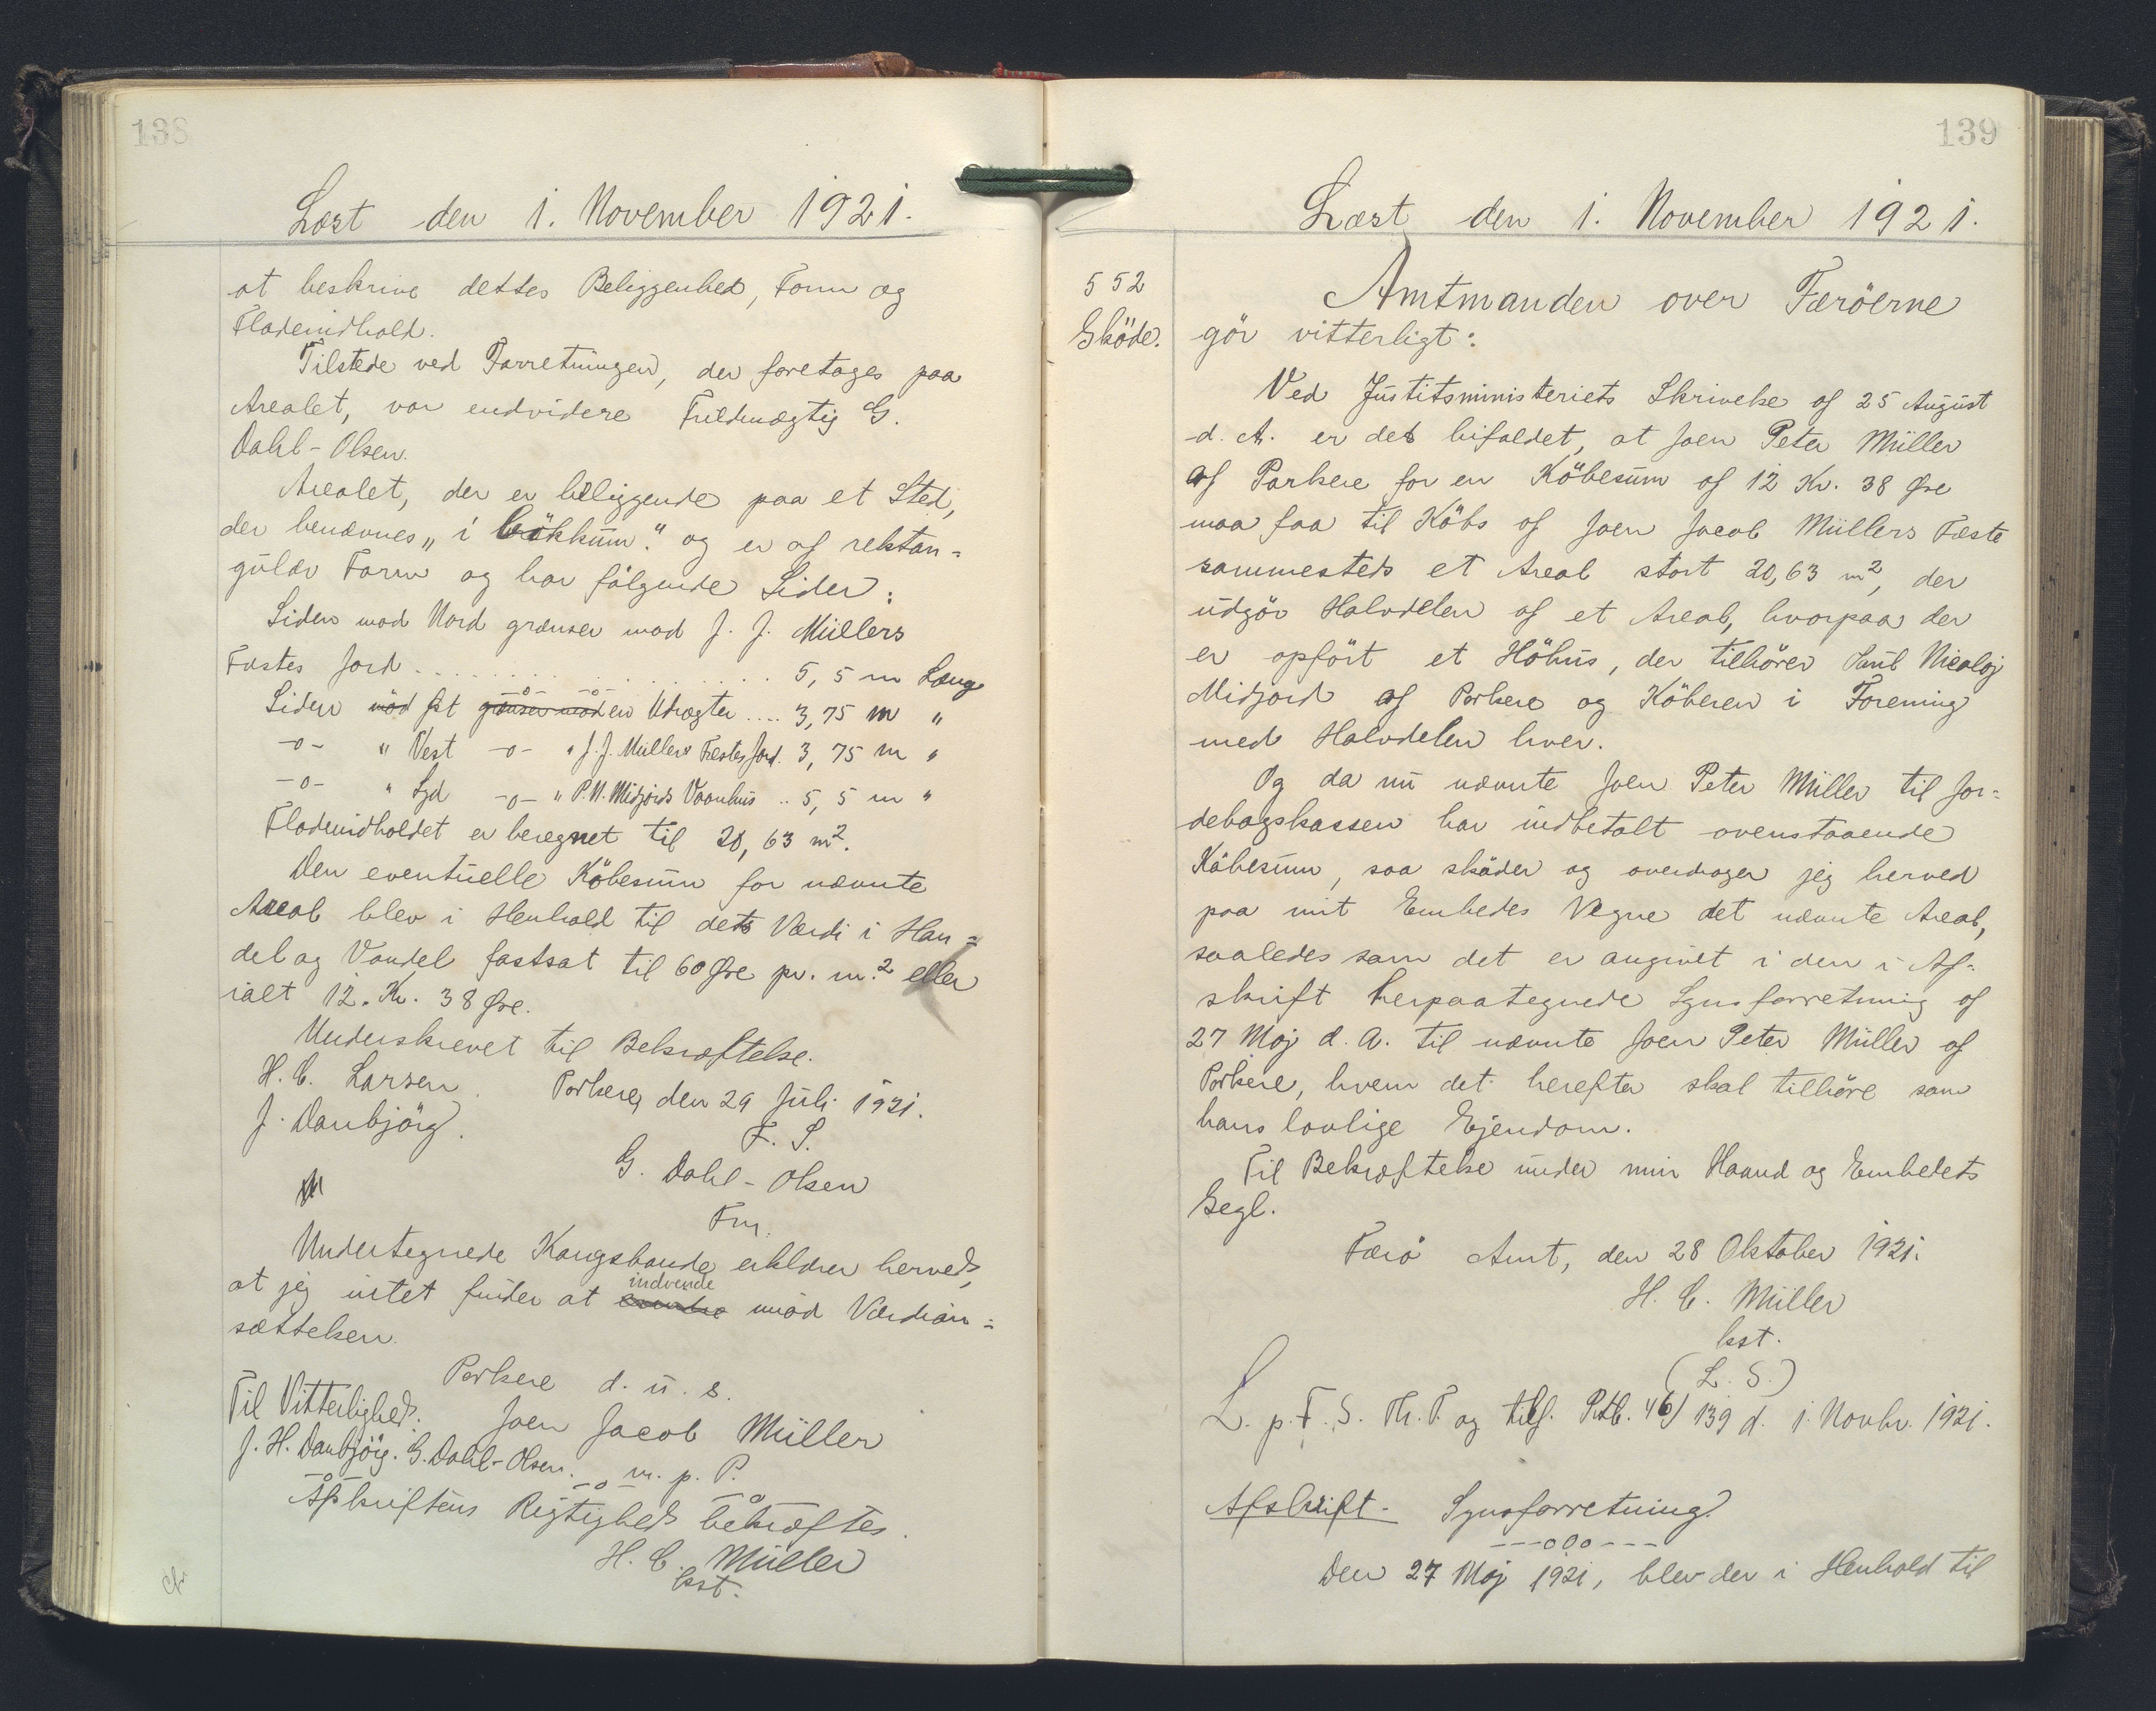 138
Læst den 1. November 1921.
at beskrive dettes Beliggenhed, Form og
Fladeindhold.
Tilstede ved Forretningen, der foretages paa
Arealet, var endvidere Fuldmægtig G.
Dahl-Olsen.
Arealet, der er beliggende paa et Sted,
der benævnes „i Bökkum." og er af rektan=
gulær Form og har følgende Sider:
Siden mod Nord grænser mod J. J. Müllers
Fæstes Jord . . . . . . . . . . 5,5 m Lang
Siden mod Øst -o- -o- en Udragter .... 3,75 m "
-o- " Vest -o- " J. J. Müllers Fæstes Jord. 3,75 m "
-o- " Syd -o- " P. N. Midjords Vaanhus .. 5,5 m "
Fladeindholdet er beregnet til 20,63 m².
Den eventuelle Köbesum for nævnte
Areal blev i Henhold til dets Værdi i Han=
del og Vandel fastsat til 60 Øre pr. m.² eller
ialt 12. Kr. 38 Øre.
Underskrevet til Bekræftelse.
H. C. Larsen. Porkere, den 29 Juli 1921.
J. Danbjörg. F. S.
G. Dahl-Olsen
Fm.
Undertegnede Kongsbonde erklærer herved,
indvende
at jeg intet finder at mod Værdian=
sættelsen.
Porkere d. u. s.
Til Vitterlighed: Joen Jacob Müller
J. H. Danbjörg. G. Dahl-Olsen. m. p. P.
-o- -o- -o-
Afskriftens Rigtighed bekræftes.
H. C. Müller
kst.
139
Læst den 1. November 1921.
552
Sköde.
Amtmanden over Færöerne
gör vitterligt:
Ved Justitsministeriets Skrivelse af 25 August
d. A. er det bifaldet, at Joen Peter Müller
af Porkere for en Köbesum af 12 Kr. 38 Øre
maa faa til Köbs af Joen Jacob Müllers Fæste
sammesteds et Areal stort 20,63 m², der
udgör Halvdelen af et Areal, hvorpaa der
er opfört et Höhus, der tilhörer Poul Nicolaj
Midjord af Porkere og Köberen i Forening
med Halvdelen hver.
Og da nu nævnte Joen Peter Müller til Jor=
debogskassen har indbetalt ovenstaaende
Köbesum, saa sköder og overdrager jeg herved
paa mit Embedes Vegne det nævnte Areal,
saaledes som det er angivet i den i Af=
skrift herpaategnede Synsforretning af
27 Maj d. A. til nævnte Joen Peter Müller af
Porkere, hvem det herefter skal tilhöre som
hans lovlige Ejendom.
Til Bekræftelse under min Haand og Embedets
Segl.
Færö Amt, den 28 Oktober 1921.
H. C. Müller
kst.
(L. S.)
L. p. F. S. Th. T. og tilf. Ptb. 46/139 d. 1. Novbr. 1921.
Afskrift. Synsforretning
---ooo---
Den 27 Maj 1921, blev der i Henhold til